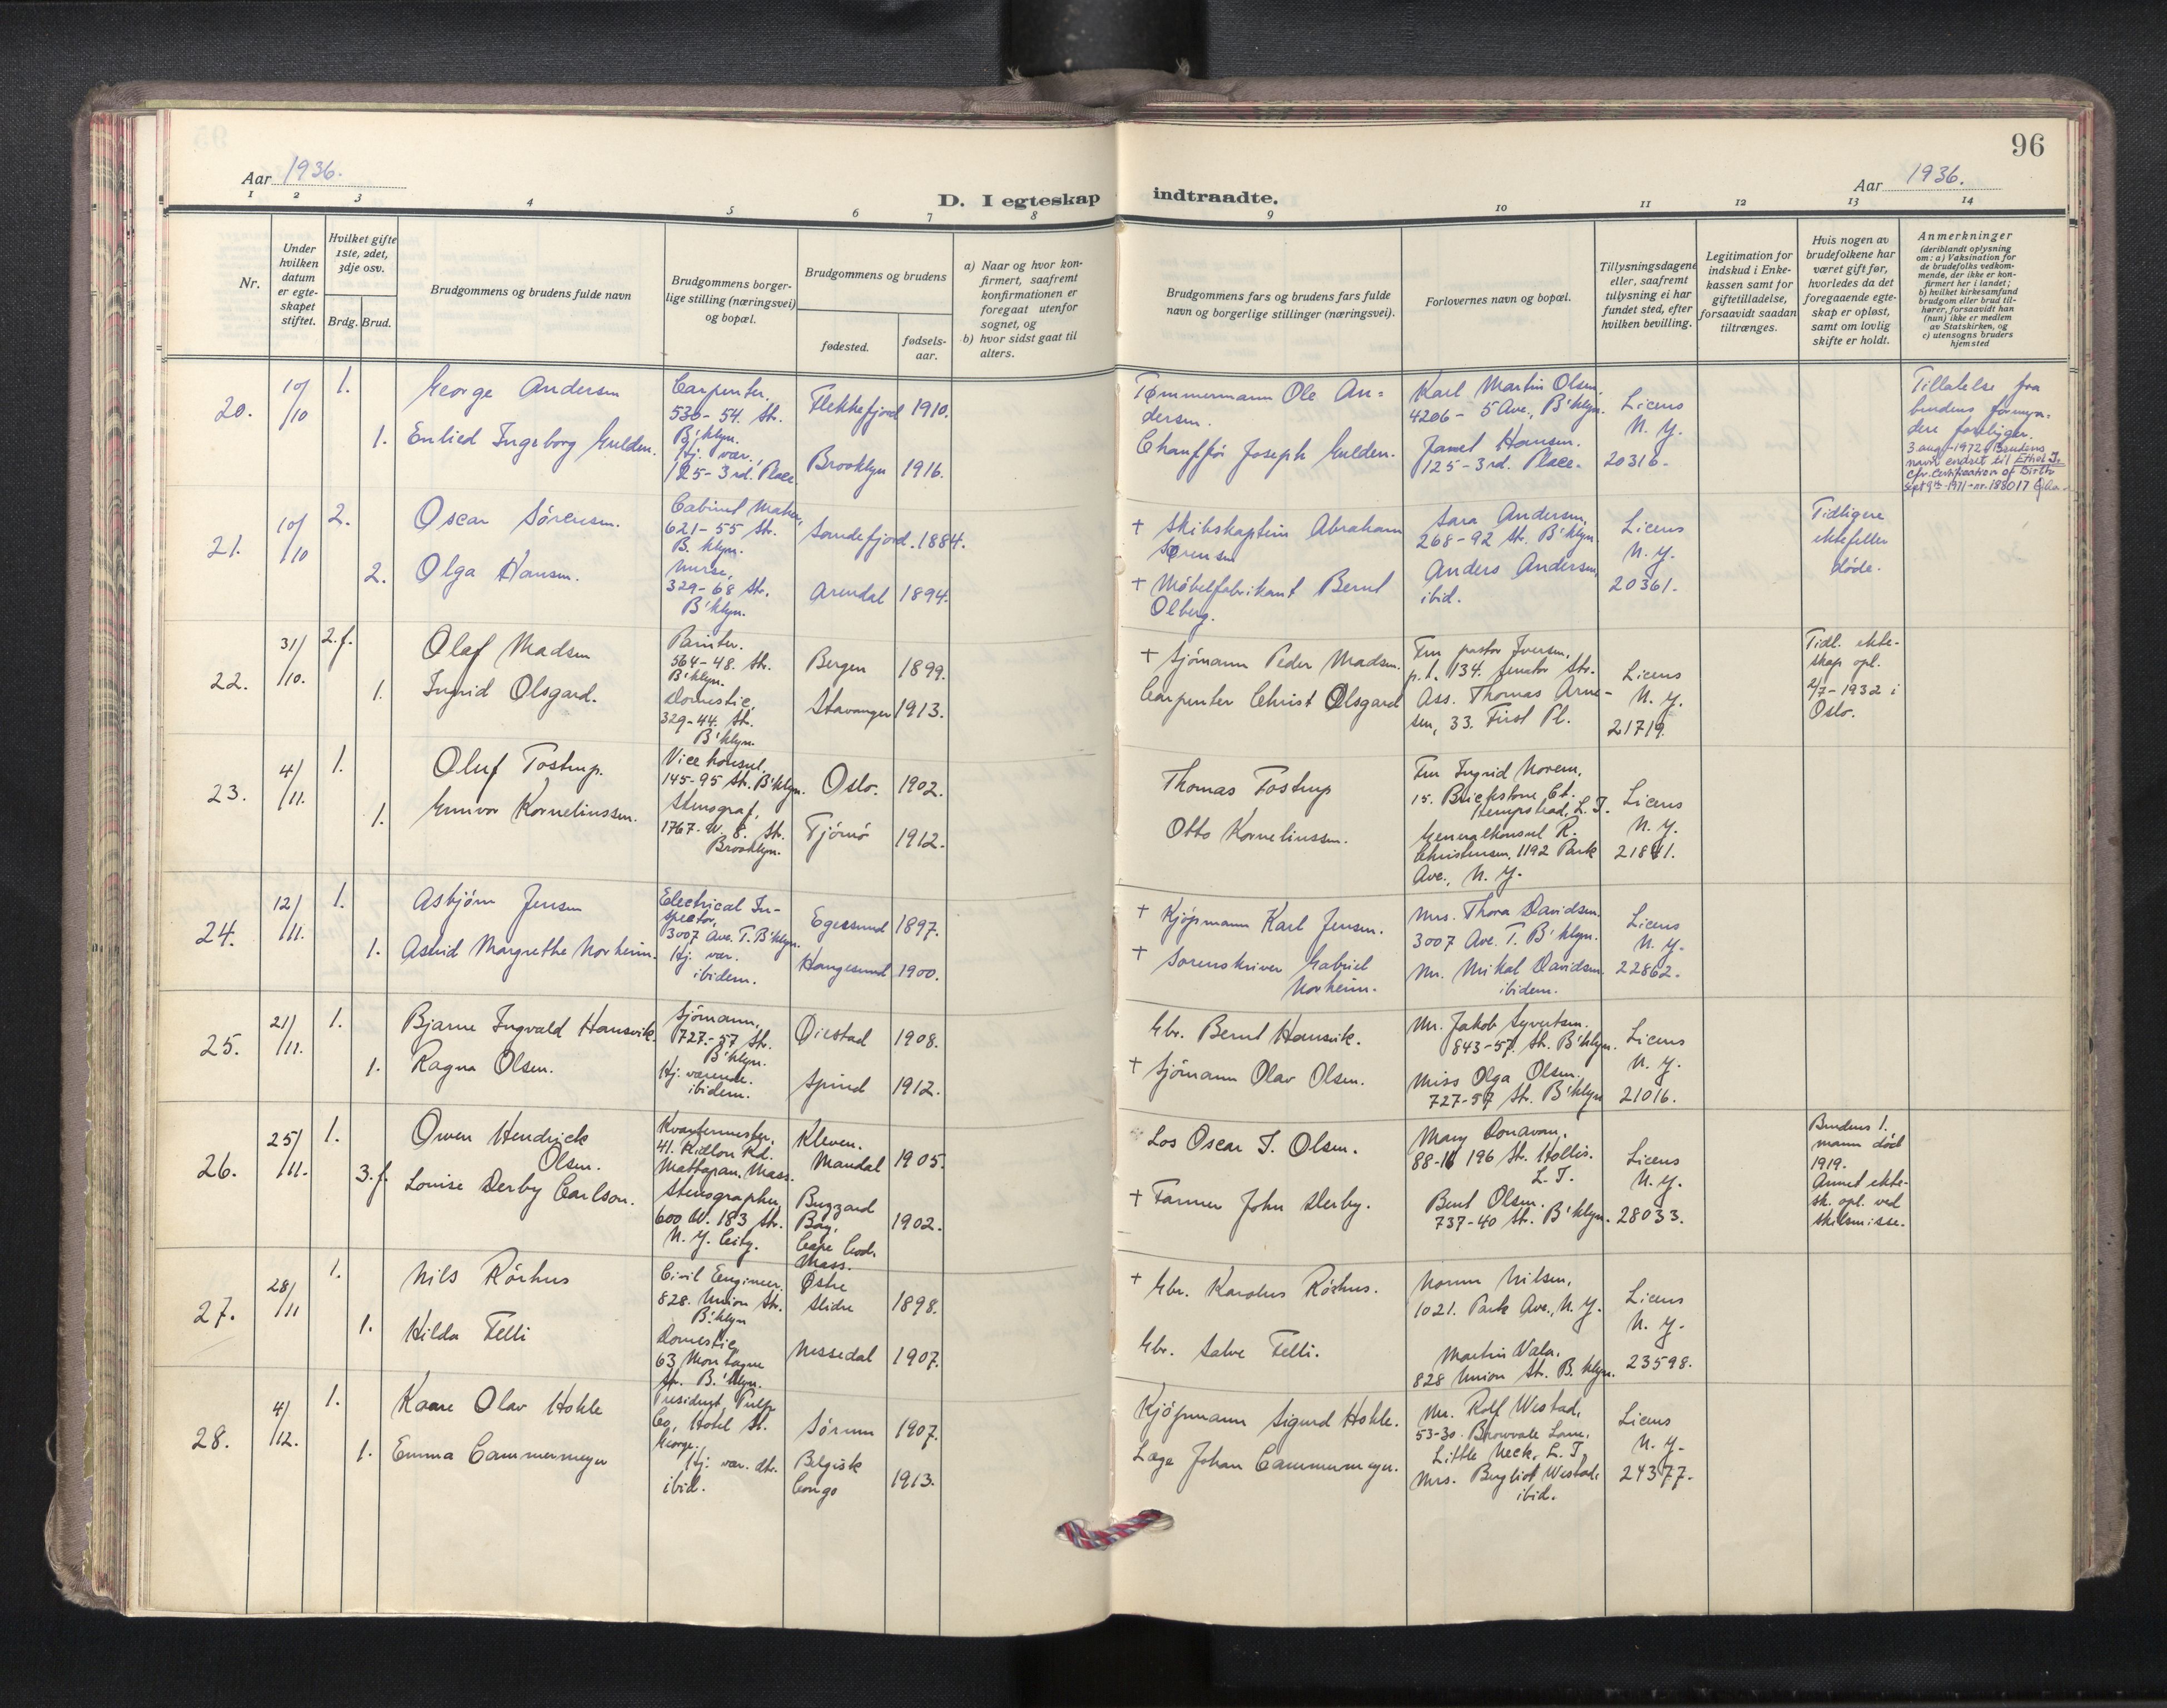 96
Aar 1936.
Aar 1936.
D. I egteskap indtraadte.
1 2 3 4 5 6 7 8 9 10 11 12 13 14
Nr.
Under
hvilken
datum
er egte-
skapet
stiftet.
Hvilket gifte
1ste, 2det,
3dje osv.
Brdg. Brud.
Brudgommens og brudens fulde navn
Brudgommens borger-
lige stilling (næringsvei)
og bopæl.
Brudgommens og brudens
fødested.
fødsels-
aar.
a) Naar og hvor kon-
firmert, saafremt
konfirmationen er
foregaat utenfor
sognet, og
b) hvor sidst gaat til
alters.
Brudgommens fars og brudens fars fulde
navn og borgerlige stillinger (næringsvei).
Forlovernes navn og bopæl.
Tillysningsdagene
eller, saafremt
tillysning ei har
fundet sted, efter
hvilken bevilling.
Legitimation for
indskud i Enke-
kassen samt for
giftetilladelse,
forsaavidt saadan
tiltrænges.
Hvis nogen av
brudefolkene har
været gift før,
hvorledes da det
foregaaende egte-
skap er opløst,
samt om lovlig
skifte er holdt.
Anmerkninger
(deriblandt oplysning
om: a) Vaksination for
de brudefolks vedkom-
mende, der ikke er kon-
firmert her i landet;
b) hvilket kirkesamfund
brudgom eller brud til-
hører, forsaavidt han
(hun) ikke er medlem
av Statskirken, og
c) utensogns bruders
hjemsted
20.
10/
/10
1.
George Andersen
Carpenter,
530-54. Str.
B'klyn.
Flekkefjord 1910.
Tømmermann Ole An-
dersen.
Karl Martin Olsen,
4206- 5 Ave., B'klyn.
Licens
N. Y.
20316.
Tillatelse fra
brudens formyn-
dere foreligger.
3. aug. 1972 Brudens
navn endret til Ethel I.
cfr. Certification of Birth
sept 9th 1971 - nr. 188017
1. Enlied Ingeborg Gulden.
Hj. vær.,
125-3rd. Place.
Brooklyn 1916.
Chauffør Joseph Gulden.
Janet Hansen.
125-3rd. Place.
21.
10/
/10
2.
Oscar Sørensen.
Cabinet Maker,
621-55 Str.
B. klyn.
Sandefjord. 1884.
+ Skibskaptein Abraham
Sørensen
Sara Andersen,
268-92 Str. B'klyn.
Licens
N. Y.
20361.
Tidligere
ektefeller
døde.
2. Olga Hansen.
Nurse,
329-68 Str.
B'klyn.
Arendal 1894.
+ Møbelfabrikant Bernt
Olberg.
Anders Andersen,
ibid.
22.
31/
/10.
2. f.
Olaf Madsen
Painter.
564-48. Str.
B'klyn.
Bergen 1899.
+ Sjømann Peder Madsen.
Fru pastor Iversen,
p.t. 134. Senator Str.
Licens
N. Y.
21719.
Tidl. ekte-
skap opl.
2/7-1932 i
Oslo.
1. Ingrid Olsgard.
Domestic,
329-44. Str.
B'klyn.
Stavanger 1913.
Carpenter Christ Olsgard
Ass. Thomas Arne-
sen, 33. First Pl.
23.
4/
/11.
1.
Oluf Tostrup.
Vice konsul.
145-95 Str. B'klyn.
Oslo. 1902.
Thomas Tostrup
Fru Ingrid Norem,
15. Brickstone Ct.
Hempstead, L. I.
Licens
N. Y.
21841.
1. Gunvor Kornelinssen.
Stenograf,
1767-W. 8. Str.
Brooklyn.
Tjømø 1912.
Otto Kornelinssen.
Generalkonsul R.
Christensen, 1192 Park
Ave., N. Y.
24.
12/
/11.
1.
Asbjørn Jensen
Electrical In-
spector,
3007 Ave. T. B'klyn.
Egersund 1897.
+ Kjøpmann Karl Jensen.
Mrs. Thora Davidsen,
3007 Ave. T. B'klyn.
Licens
N. Y.
22862.
1. Astrid Margrethe Norheim.
Hj. vær.
ibidem.
Haugesund 1900.
+ Sorenskriver Gabriel
Norheim.
Mr. Mikal Davidsen
ibidem.
25.
21/
/11.
1.
Bjarne Ingvald Hansvik.
Sjømann,
727-57 Str.
B'klyn.
Øiestad 1908.
Gbr. Bernt Hansvik.
Mr. Jakob Syvertsen.
843-57. Str. B'klyn.
Licens
N. Y.
21016.
1. Ragna Olsen.
Hj. værende.
ibidem.
Spind 1912.
+ Sjømann Olav Olsen.
Miss Olga Olsen,
727-57 Str. B'klyn
26.
25/
/11.
1.
Owen Hendrick
Olsen.
Kvartermester,
41. Ridlon Rd.
Mattapan. Mass.
Kleven.
Mandal 1905.
Los Oscar I. Olsen.
Mary Donavan,
88-16 196 Str. Hollis.
L. I.
Licens
N. Y.
28033.
Brudens 1.
mann død
1919.
Annet ekte-
sk. opl. ved
skilsmisse.
3. f. Louise Derby Carlson.
Stenographer,
600 W. 183 Str.
N. Y. City.
Buzzard
Bay,
Cape Cod.
Mass.
1902.
+ Farmer John Derby.
Bent Olsen.
737-40 Str. B'klyn.
27.
28/
/11
1.
Nils Rørhus
Civil Engineer,
828. Union Str.
B'klyn
Østre
Slidre 1898.
+ Gbr. Karolus Rørhus.
Norun Nilsen,
1021. Park Ave., N. Y.
Licens
N. Y.
23598.
1. Hilda Felli
Domestic,
63 Montague
Str. B.'klyn.
Nissedal 1907.
Gbr. Salve Felli.
Martin Vala,
828 Union Str. B. klyn.
28.
4/
/12.
1.
Kaare Olav Hohle
President, Pulp
Co, Hotel St.
George.
Sørum 1907.
Kjøpmann Sigurd Hohle.
Mr. Rolf Westad,
53-30. Browvale Lane,
Little Neck, L. I.,
Licens
N. Y.
24377.
1. Emma Cammermeyer
Hj. vær. dtr.
ibid.
Belgisk
Congo 1913.
Læge Johan Cammermeyer.
Mrs. Bergliot Westad,
ibid.